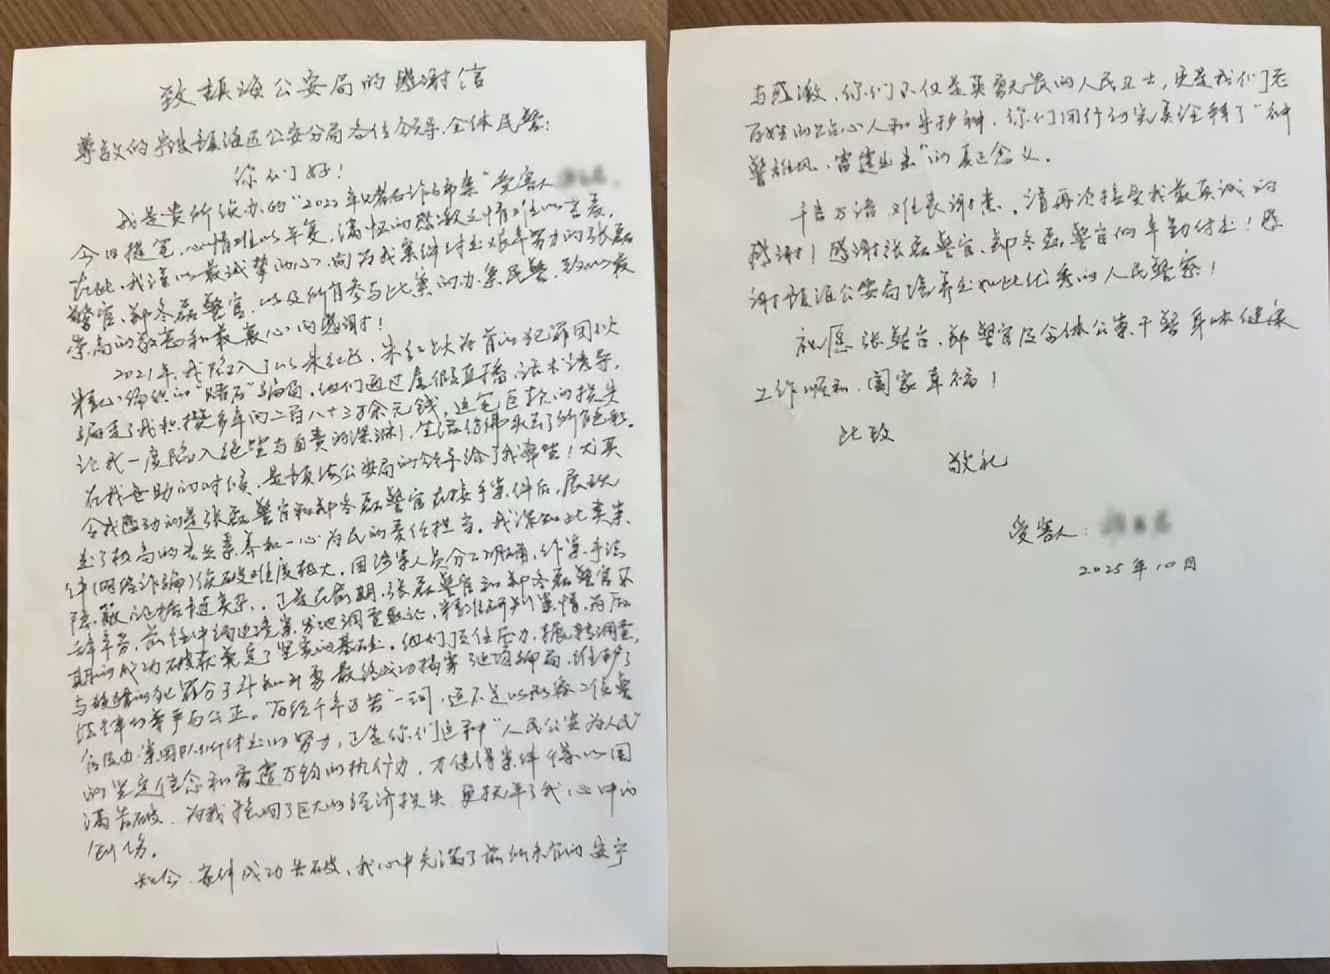 致镇海公安局的感谢信
尊敬的宁波镇海区公安分局各位领导、全体民警：
你们好！
我是贵所侦办的“2021年赌石诈骗案”受害人
今日提笔，心情难以平复，满怀的感激之情难以言表。
在此，我谨以最诚挚的心，向为我案件付出艰辛努力的张磊
警官、郑冬磊警官，以及所有参与此案的办案民警，致以最
崇高的敬意和最衷心的感谢！
2021年，我陷入了以朱红飞、朱红 为首的犯罪团伙
精心编织的“赌石”骗局，他们通过虚假直播、话术诱导，
骗走了我积攒多年的二百八十三万余元钱，这笔巨款的损失
让我一度陷入绝望与自责的深渊，生活仿佛失去了所有色彩。
在我无助的时候，是镇海公安局的领导给了我希望！尤其
令我感动的是张磊警官和郑冬磊警官在接手案件后，展现
出了极高的专业素养和一心为民的责任担当。我深知此类案
件（网络诈骗）侦破难度极大，因涉案人员分工明确，作案手法
隐蔽，证据链复杂，正是在前期，张磊警官和郑冬磊警官不
辞辛劳，前往中缅边境案发地调查取证，精准研判案情，为后
期的成功破获奠定了坚实的基础。他们顶住压力，辗转调查，
与狡猾的犯罪分子斗智斗勇，最终成功揭穿了这场骗局，维护了
法律的尊严与公正。“历经千辛万苦”一词，远不足以形容二位警
官及办案团队所付出的努力，正是你们这种“人民公安为人民”
的坚定信念和雷霆万钧的执行力，才使得案件得以圆
满告破，为我挽回了巨大的经济损失，更抚平了我心中的
创伤。
如今，案件成功告破，我心中充满了前所未有的安宁
与感激，你们不仅是英勇无畏的人民卫士，更是我们老
百姓的贴心人和守护神，你们用行动完美诠释了“神
警雄风、雷霆出击”的真正含义。
千言万语，难表谢意，请再次接受我最真诚的
感谢！感谢张磊警官、郑冬磊警官的辛勤付出！感
谢镇海公安局培养出如此优秀的人民警察！
祝愿张警官、郑警官及全体公安干警身体健康
工作顺利、阖家幸福！
此致
敬礼
受害人：
2025年10月